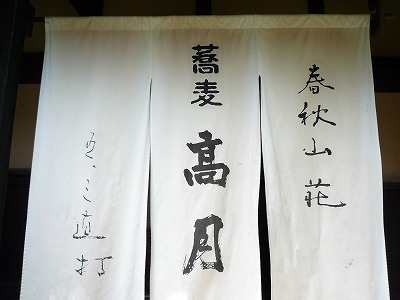 春秋山荘
蕎麦
高月
直打